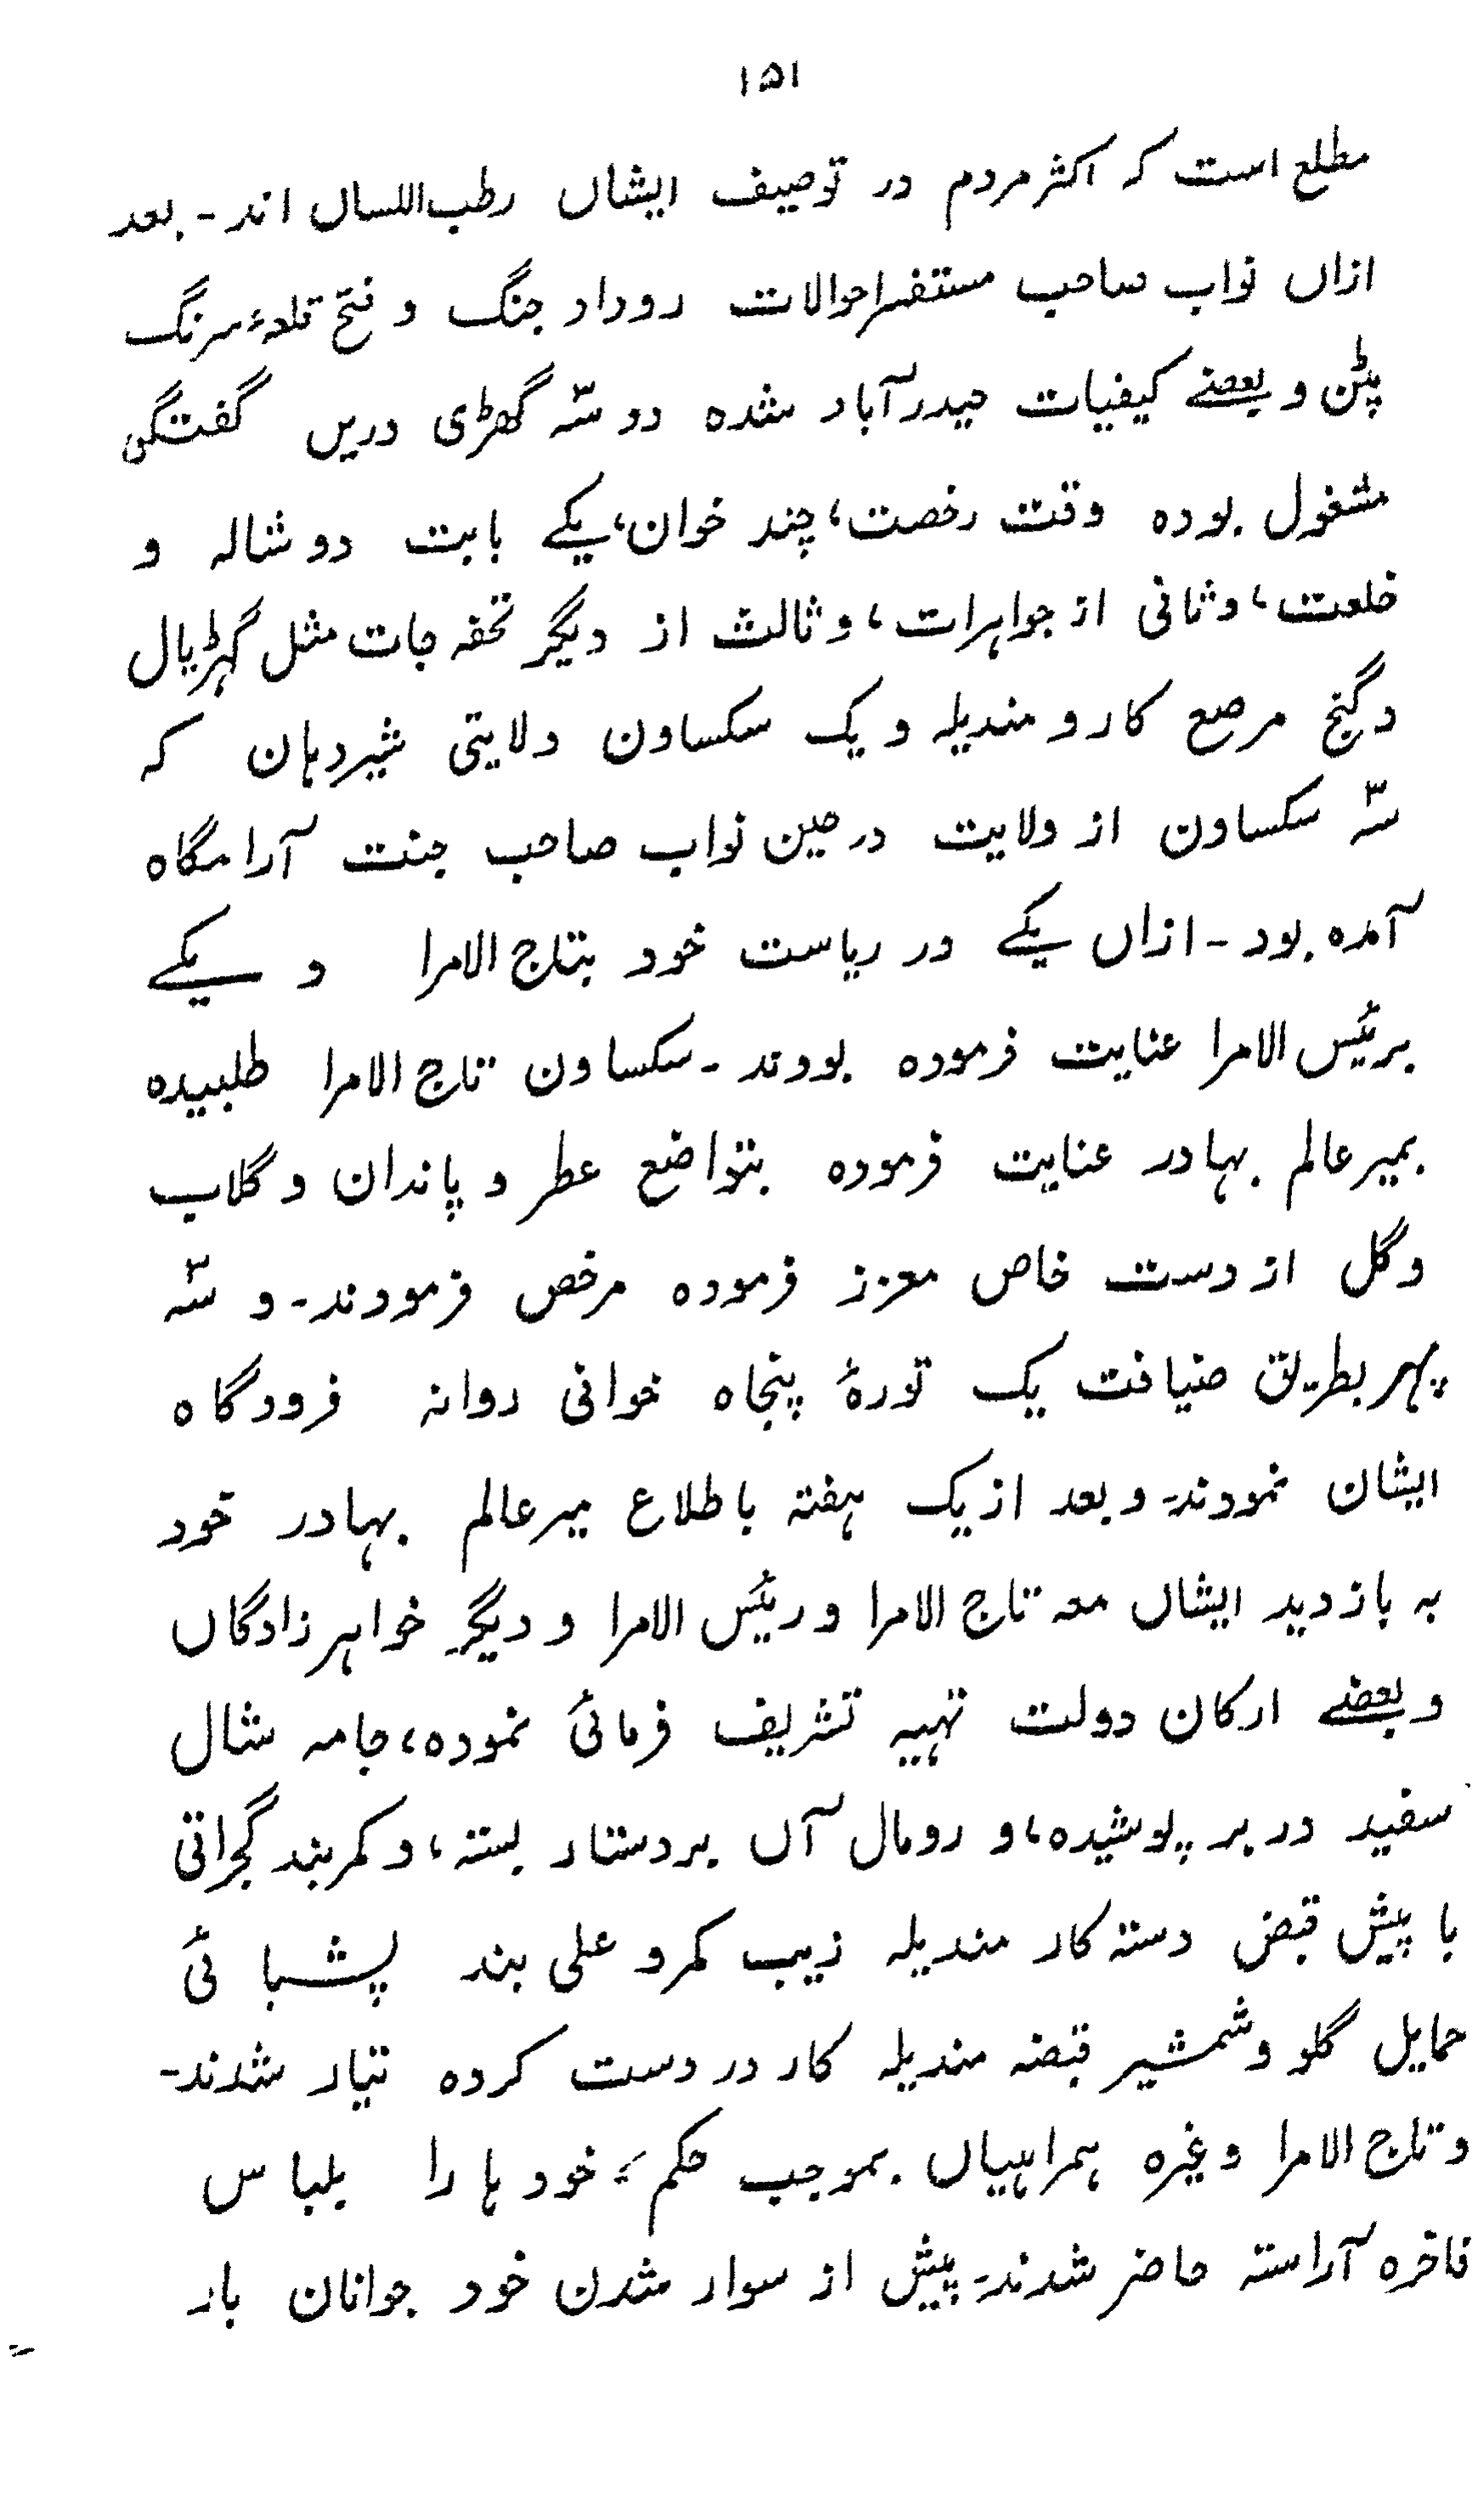 ۱۵۱
مطلع است کہ اکثر مردم در توصیف ایشاں رطب اللساں اند۔ بعد
ازاں نواب صاحب مستفسر احوالات روداد جنگ و فتح قلعۂ سرنگ
پٹن و بعضے کیفیات حیدرآباد شدہ دو سہ گھڑی دریں گفتگی
مشغول بودہ وقت رخصت، چند خوان، یکے بابت دوشالہ و
خلعت، و ثانی از جواہرات، و ثالث از دیگر تحفہ جات مثل گہڑیال
و گنج مرصع کار و مندیلہ و یک سکساون ولایتی شیر دہان کہ
سہ سکساون از ولایت در حین نواب صاحب جنت آرامگاہ
آمدہ بود۔ ازاں یکے در ریاست خود بتاج الامرا و یکے
برئیس الامرا عنایت فرمودہ بودند۔ سکساون تاج الامرا طلبیدہ
بمیر عالم بہادر عنایت فرمودہ بتواضع عطر و پاندان و گلاب
و گل از دست خاص معزز فرمودہ مرخص فرمودند۔ و سہ
پہر بطریق ضیافت یک تورۂ پنجاہ خوانی روانہ فرودگاہ
ایشان نمودند۔ و بعد از یک ہفتہ باطلاع میر عالم بہادر خود
بہ بازدید ایشاں معہ تاج الامرا و رئیس الامرا و دیگر خواہر زادگاں
و بعضے ارکان دولت تہیہ تشریف فرمائی نمودہ، جامہ شال
سفید در بر پوشیدہ، و رومال آں بر دستار بستہ، و کمربند گجراتی
با پیش قبض دستہ کار مندیلہ زیب کمر و علی بند پشبائی
حمایل گلو و شمشیر قبضہ مندیلہ کار در دست کردہ تیار شدند۔
و تاج الامرا وغیرہ ہمراہیاں بموجب حکم، خود ہا را بلباس
فاخرہ آراستہ حاضر شدند۔ پیش از سوار شدن خود جوانان بار